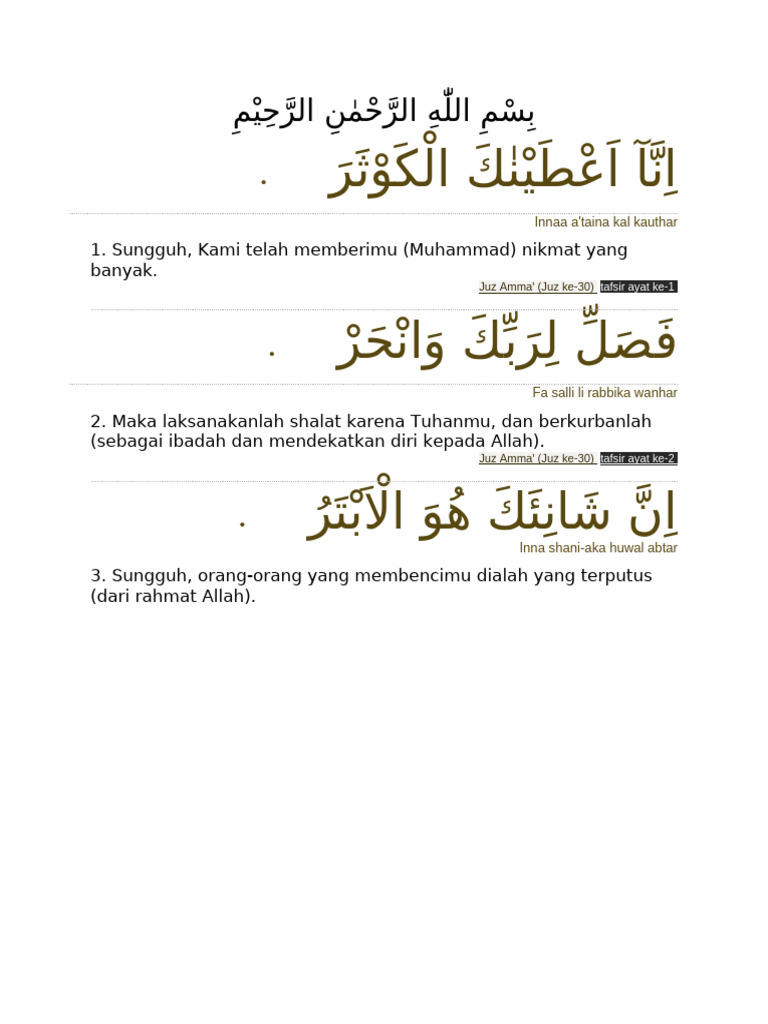 بِسْمِ اللّٰهِ الرَّحْمٰنِ الرَّحِيْمِ
اِنَّآ اَعْطَيْنٰكَ الْكَوْثَرَ .
Innaa a'taina kal kauthar
1. Sungguh, Kami telah memberimu (Muhammad) nikmat yang
banyak.
Juz Amma' (Juz ke-30) tafsir ayat ke-1
فَصَلِّ لِرَبِّكَ وَانْحَرْ .
Fa salli li rabbika wanhar
2. Maka laksanakanlah shalat karena Tuhanmu, dan berkurbanlah
(sebagai ibadah dan mendekatkan diri kepada Allah).
Juz Amma' (Juz ke-30) tafsir ayat ke-2
اِنَّ شَانِئَكَ هُوَ الْاَبْتَرُ .
Inna shani-aka huwal abtar
3. Sungguh, orang-orang yang membencimu dialah yang terputus
(dari rahmat Allah).